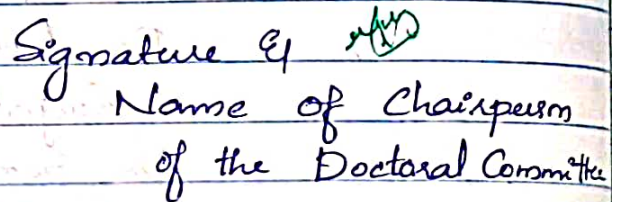 Signature &
Name of Chairperson
of the Doctoral Committee